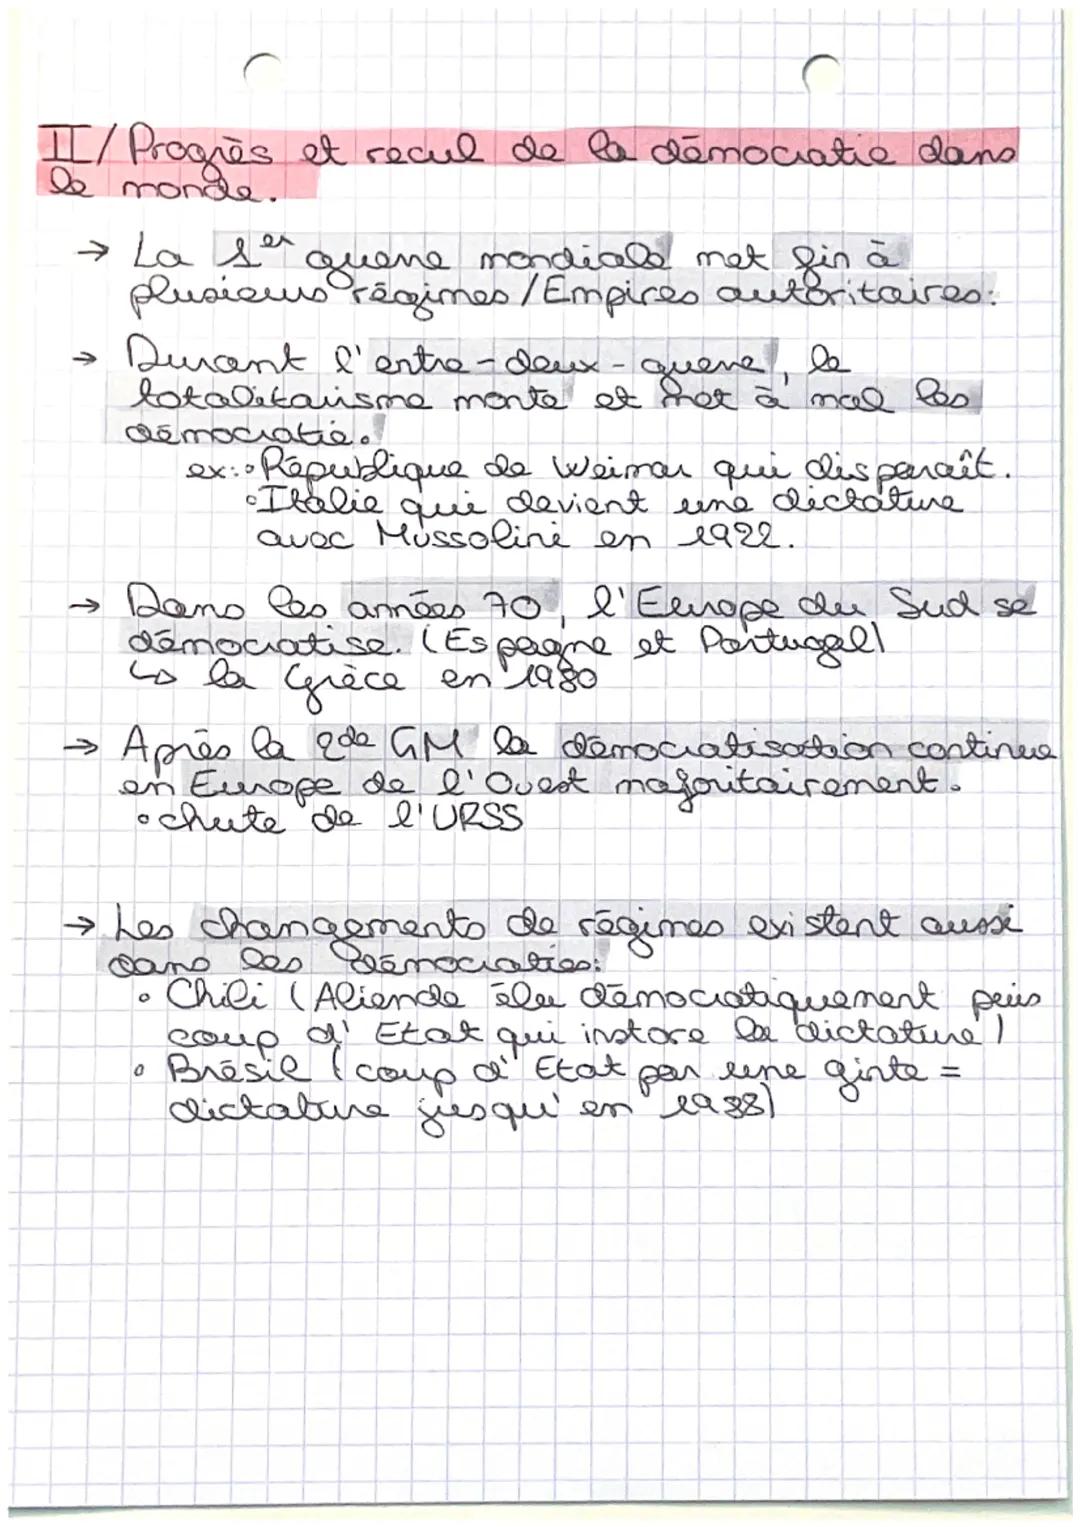 II/ Progrès et recul de la démocratie dans
le monde.
→ La 1er guerre mondiale met fin à
plusieurs régimes / Empires autoritaires:
→ Durant l'entre-deux-guerre, le
totalitarisme monte et met à mal les
démocratie.
ex: • République de Weimar qui disparaît.
• Italie qui devient une dictature
avec Mussolini en 1922.
→ Dans les années 70, l'Europe du Sud se
démocratise. (Espagne et Portugal)
↳ la Grèce en 1980
→ Après la 2de GM la démocratisation continue
en Europe de l'Ouest majoritairement.
• chute de l'URSS
→ Les changements de régimes existent aussi
dans les démocraties:
• Chili (Aliende élu démocratiquement puis
coup d'Etat qui instore la dictature)
• Brésil (coup d'Etat par une ginte =
dictature jusqu'en 1988)